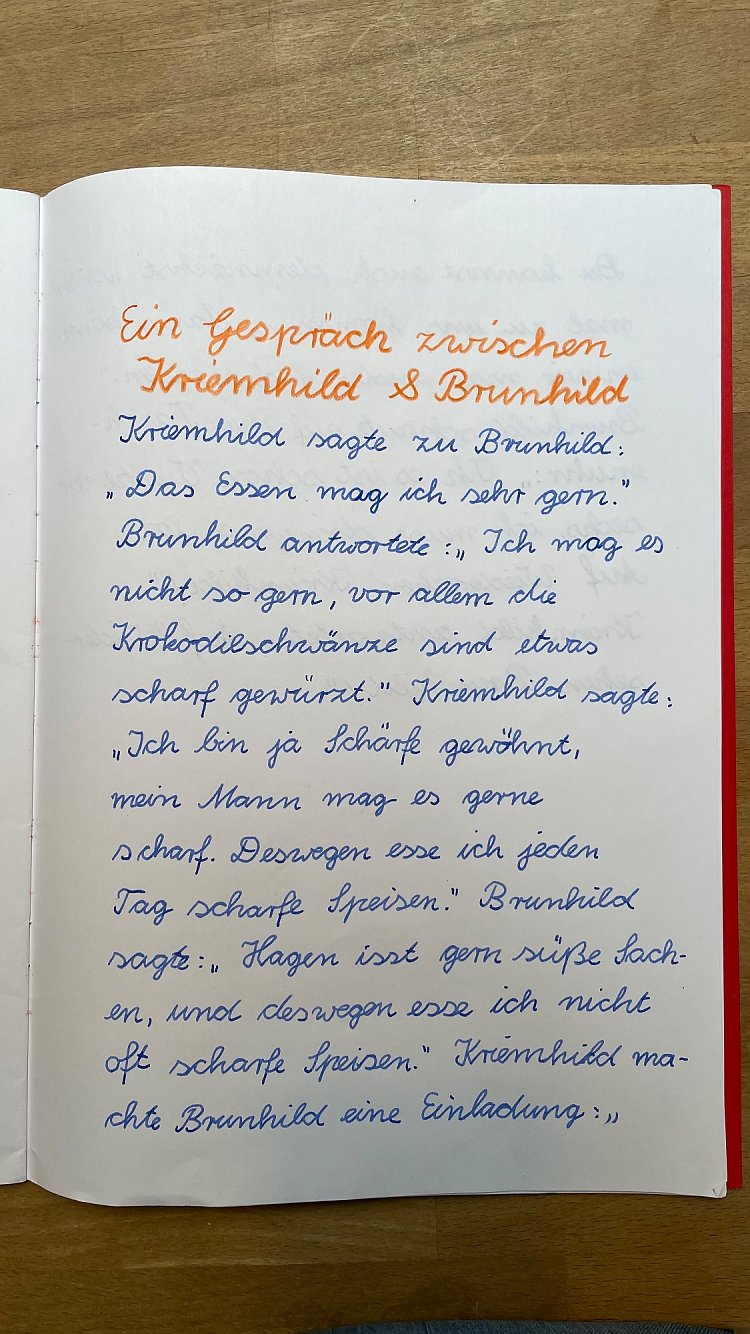 Ein Gespräch zwischen
Kriemhild & Brunhild
Kriemhild sagte zu Brunhild:
„Das Essen mag ich sehr gern."
Brunhild antwortete:„ Ich mag es
nicht so gern, vor allem die
Krokodilschwänze sind etwas
scharf gewürzt." Kriemhild sagte:
„Ich bin ja Schärfe gewöhnt,
mein Mann mag es gerne
scharf. Deswegen esse ich jeden
Tag scharfe Speisen." Brunhild
sagte:„ Hagen isst gern süße Sach-
en, und deswegen esse ich nicht
oft scharfe Speisen." Kriemhild ma-
chte Brunhild eine Einladung:„